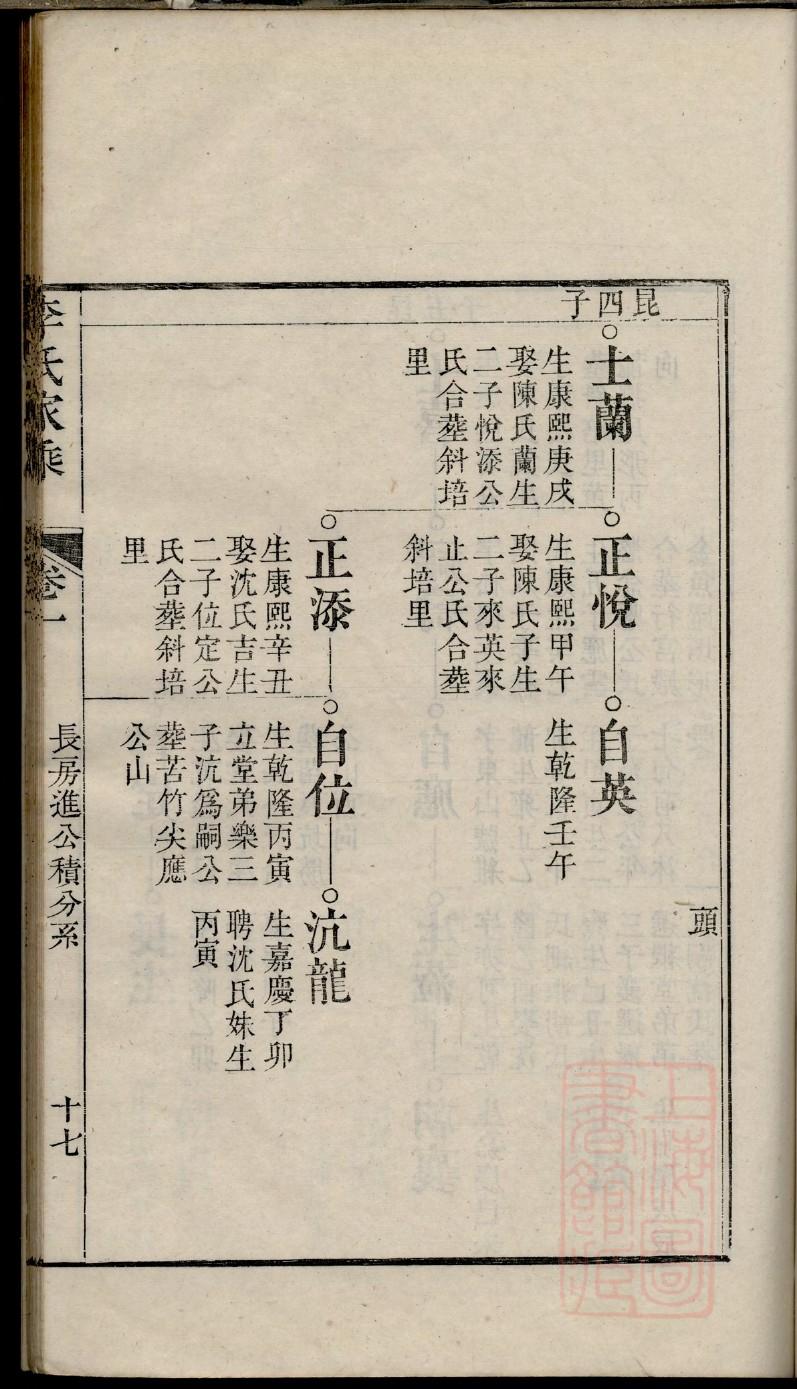 頭
昆四子
士蘭
生康熙庚戌
娶陳氏蘭生
二子悅添公
氏合塟斜培
里
正悅
生康熙甲午
娶陳氏子生
二子來英來
止公氏合塟
斜培里
自英
生乾隆壬午
正添
生康熙辛丑
娶沈氏吉生
二子位定公
氏合塟斜培
里
自位
生乾隆丙寅
立堂弟樂三
子沆爲嗣公
塟苦竹尖應
公山
沆龍
生嘉慶丁卯
聘沈氏妹生
丙寅
李氏家乘
卷一
長房進公積分系
十七
上海圖書館藏